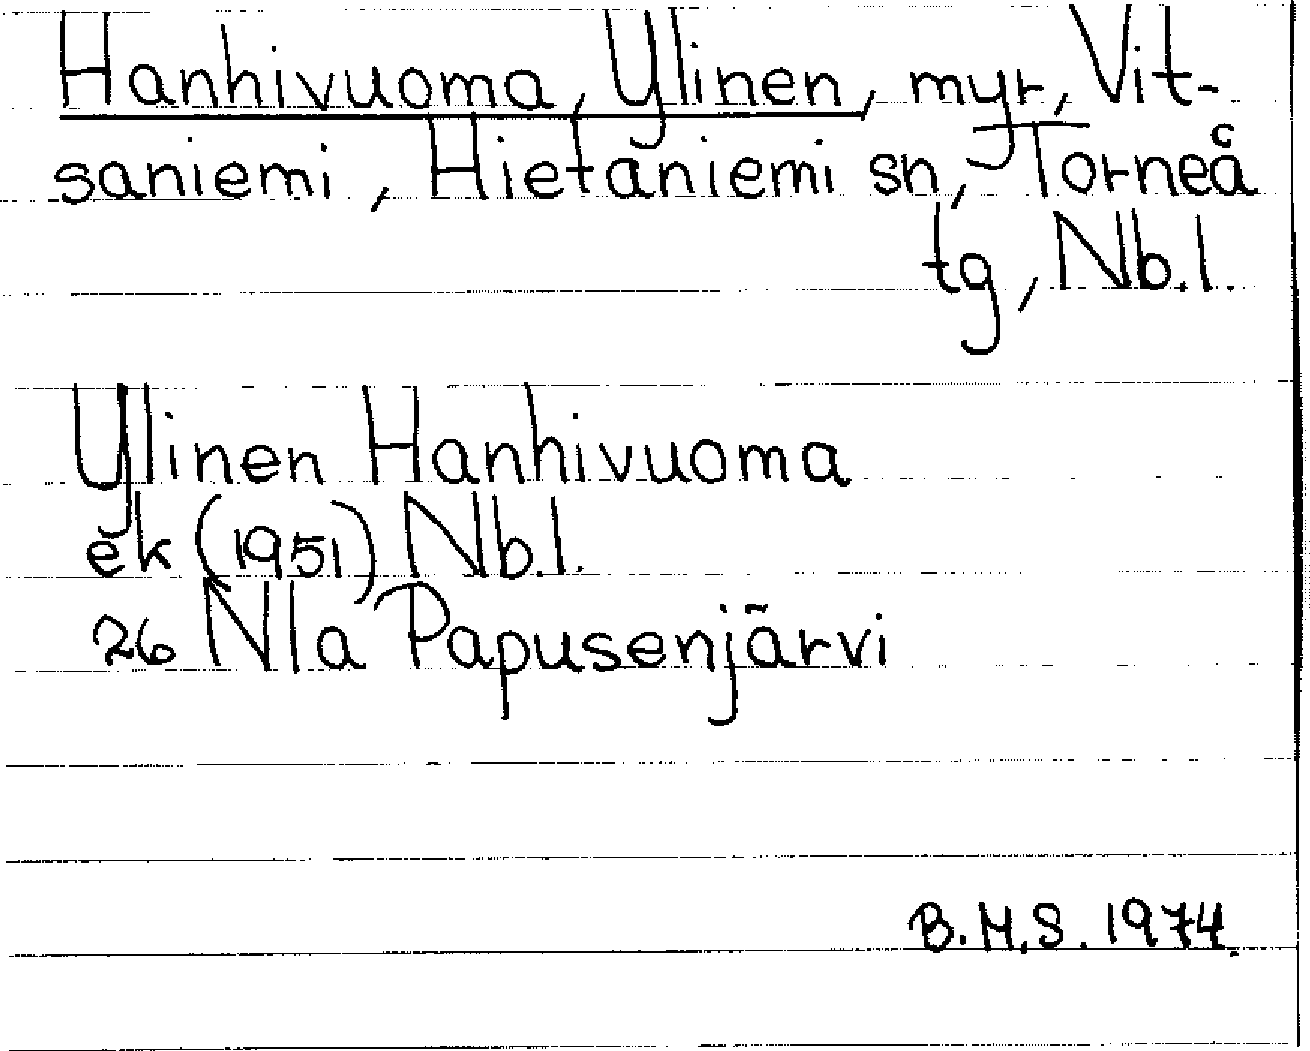 Hanhivuoma, Ylinen, myr, Vit-
saniemi, Hietaniemi sn, Torneå
tg, Nb.l.
Ylinen Hanhivuoma
ek (1951) Nb.l.
26 Nla Papusenjärvi
B.M.S. 1974.